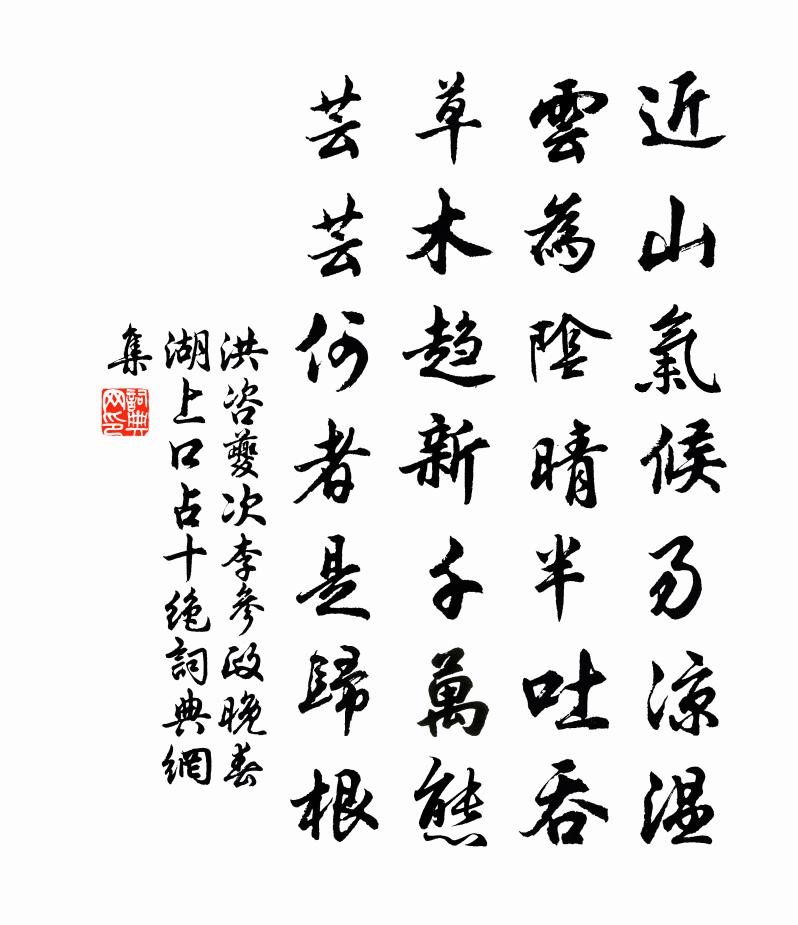 近山氣候易涼温
雲為陰晴半吐吞
草木趨新千萬態
芸芸何者是歸根
洪咨夔次李參政晚春
湖上口占十絶詞典網
集
詞典网印